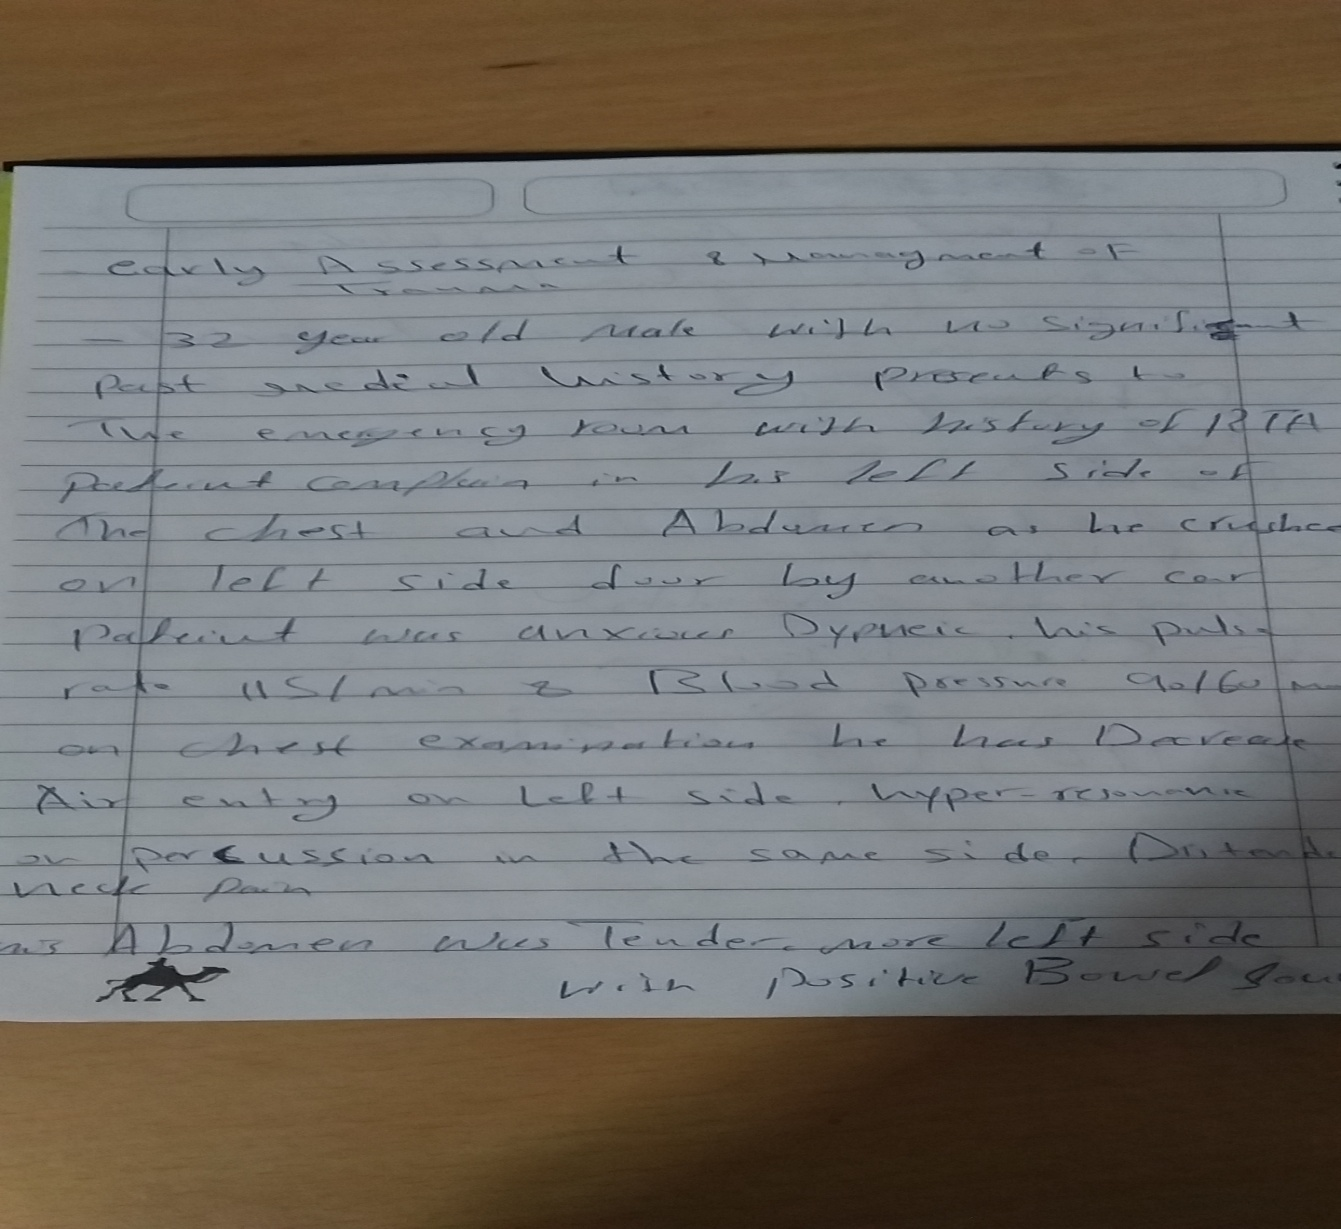 early Assessment & Managment of
Trauma
- 32 year old male with no significant
past medical history presents to
The emergency room with history of RTA
Pateint complain in his left side of
The chest and Abdomen as he crushed
on left side door by another car
Pateint was anxious Dypneic, his pulse
rate 115/min & Blood pressure 90/60
on chest examination he has Decrease
Air entry on left side, hyper-resonance
on percussion in the same side, Distend
neck
his Abdomen was Tender more left side
with positive Bowel sou